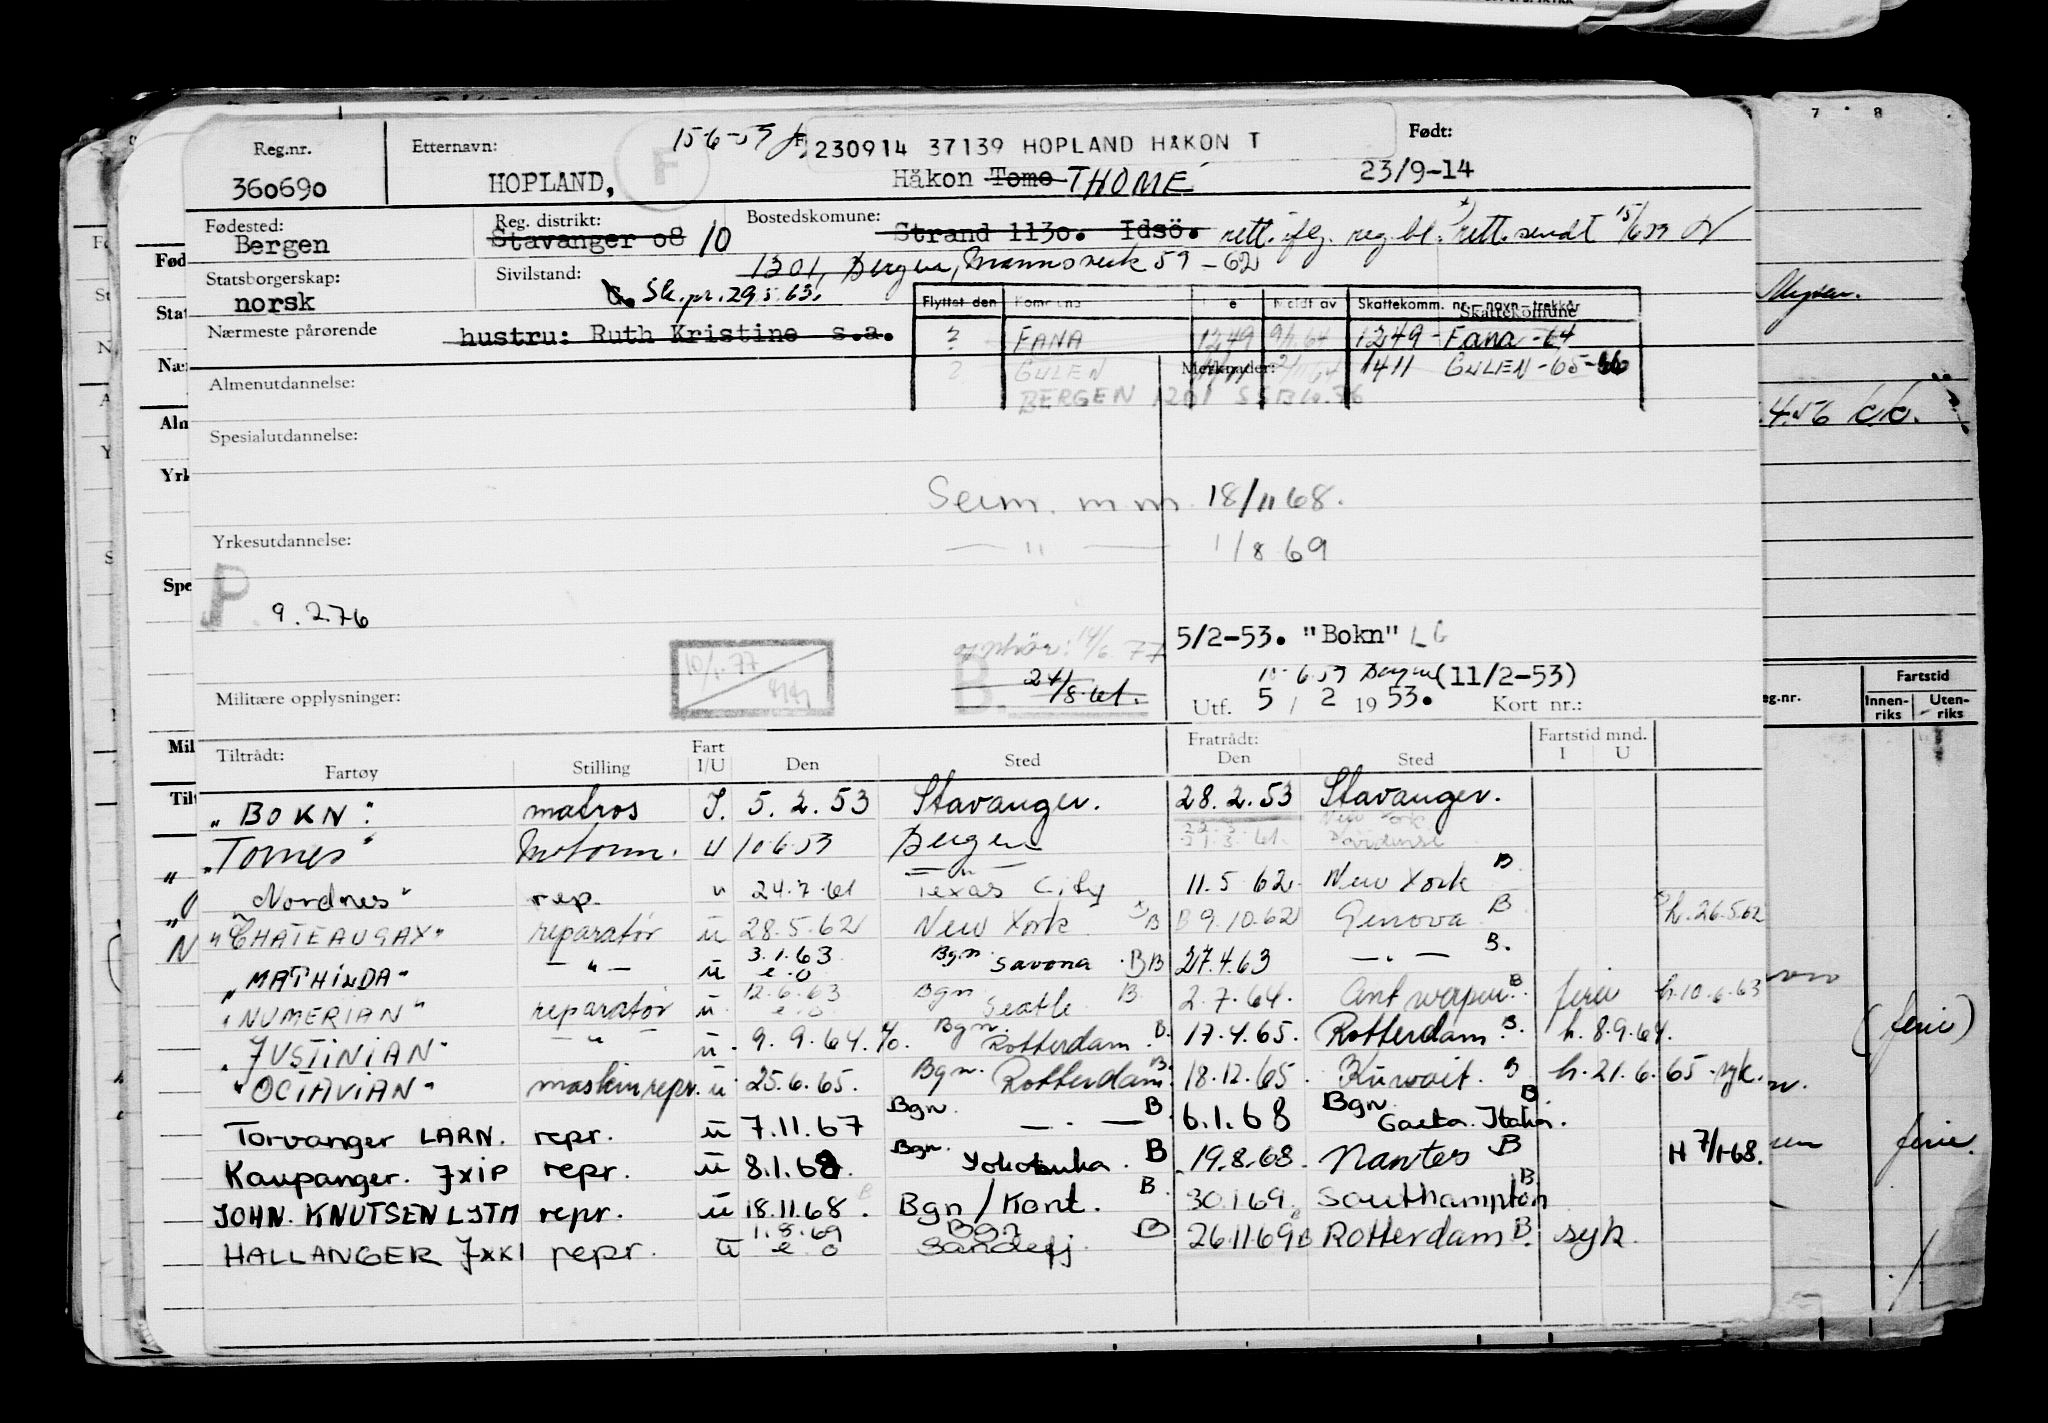 Reg.nr. Etternavn: 15-6-59 F 230914 37139 HOPLAND HAKON T Født:
360690 HOPLAND, Håkon Tomo THOMÉ 23/9-14
Fødested: Reg. distrikt: Bostedskomune:
Bergen Stavanger 08 10 Strand 1130. Idsö. rett. iflg. reg. bl. rett. sendt 15/6 59
Statsborgerskap: Sivilstand: 1301, Bergen, 59-62
norsk G. Sk.pr. 29.5.63.
Flyttet den Meldt av Skattekomm. nr. - navn - trekkår
Skattekomune
Nærmeste pårørende hustru: Ruth Kristine s.a.
? FANA 1249 9/1.64 1249 - Fana - 64
? GULEN 1411 1411 GULEN - 65-66
Almenutdannelse: Merknader:
BERGEN 1201
Spesialutdannelse:
Seim. m m. 18/11 68.
— " — 1/8 69
Yrkesutdannelse:
P. 9.2.76
10/1.77 opphör: 14/6.77 5/2-53. "Bokn" LG
B. 24/8.61. 10-6.59 Bergen (11/2-53)
Militære opplysninger: Utf. 5 / 2 1953. Kort nr.:
Tiltrådt: Fart Fratrådt: Fartstid mnd.
Fartøy Stilling I/U Den Sted Den Sted I U
"BOKN" matros I. 5.2.53 Stavanger. 28.2.53 Stavanger.
"Tornes" Motorm. U 10 6 59 Bergen 21.3.61. New York
"Nordnes" rep. " 24.7.61 Texas City 11.5 62 New York B
"CHATEAUGAY" reparatør u 28.5.62 New York B B 9.10.62 Genova B h. 26.5.62
"MATHILDA" — " — u 3.1.63 e.o Bgn. Savona B B 27.4.63 — . — B.
"NUMERIAN" reparatør u 12.6.63 e.o Bgn Seatle B 2.7.64. Antwerpen B. ferie h. 10.6.63
"JUSTINIAN" — " — u 9.9.64. Bgn. Rotterdam B. 17.4.65. Rotterdam B. h. 8.9.64.
"OCTAVIAN" maskinrepr. u 25.6.65. Bgn. Rotterdam B 18.12.65. Kuwait. B h. 21.6.65 - syk.
Torvanger LARN. repr. u 7.11.67 Bgn. — . — B 6.1.68 Bgn. Gaeta. Italia. B
Kaupanger. JXIP repr. u 8.1.68. Bgn. Yokosuka. B 19.8.68. Nantes B H 7/1-68.
JOHN. KNUTSEN LJTM repr. u 18.11.68. Bgn/Kont. B. 30.1.69. Southampton B
HALLANGER JXKI repr. u 1.8.69 e.o Bgn Sandefj. B 26.11.69 B Rotterdam B. syk.
7 8
4.56
Fartstid
Innen-riks Uten-riks
(ferie)
ferie.